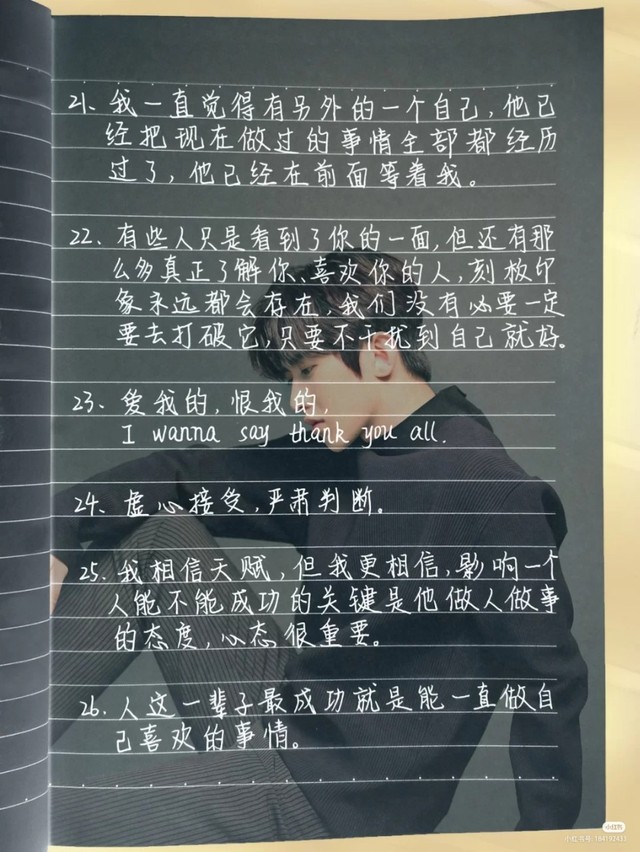 21、我一直觉得有另外的一个自己,他已
经把现在做过的事情全部都经历
过了,他已经在前面等着我。
22、有些人只是看到了你的一面,但还有那
么多真正了解你、喜欢你的人,刻板印
象永远都会存在,我们没有必要一定
要去打破它,只要不干扰到自己就好。
23、爱我的,恨我的,
I wanna say thank you all.
24、虚心接受,严肃判断。
25、我相信天赋,但我更相信,影响一个
人能不能成功的关键是他做人做事
的态度,心态很重要。
26、人这一辈子最成功就是能一直做自
己喜欢的事情。
小红书
小红书号:184193435